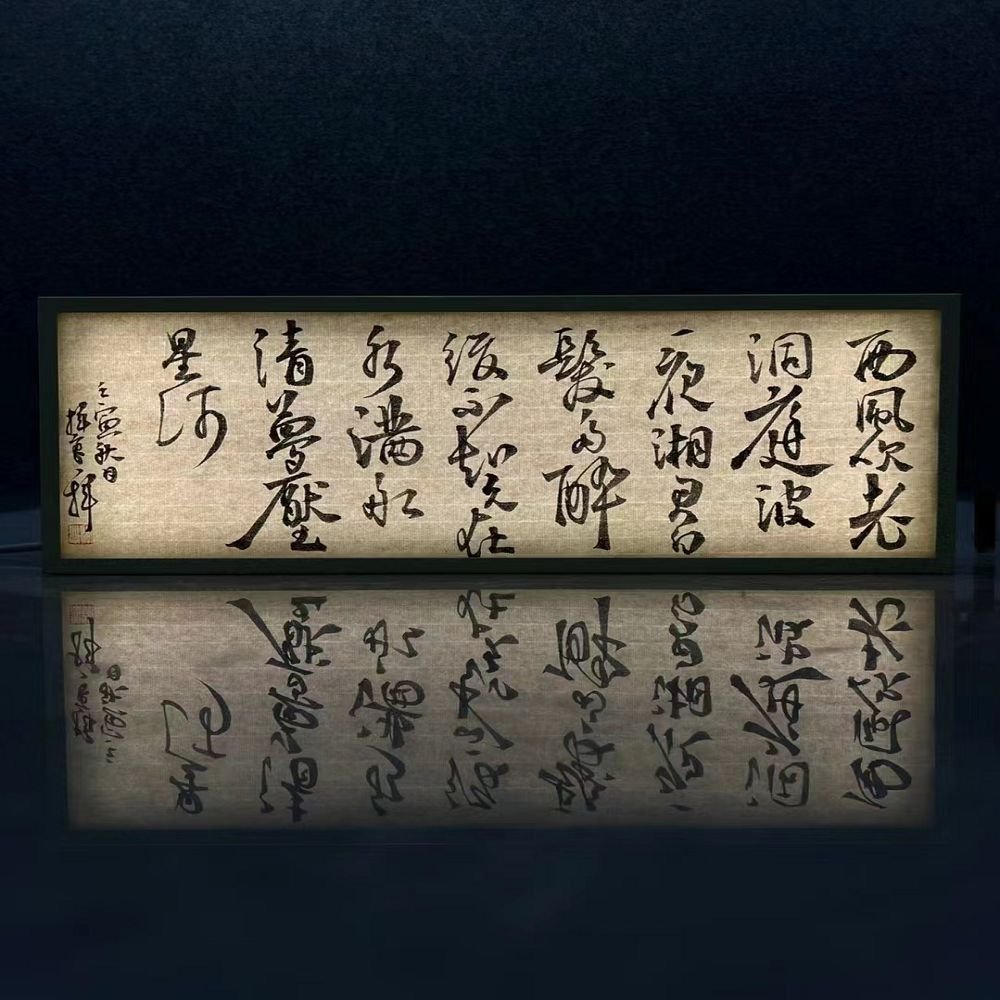 西風吹老
洞庭波
一夜湘君白
髮多醉
後不知天在
水滿船
清夢壓
星河
壬寅秋日